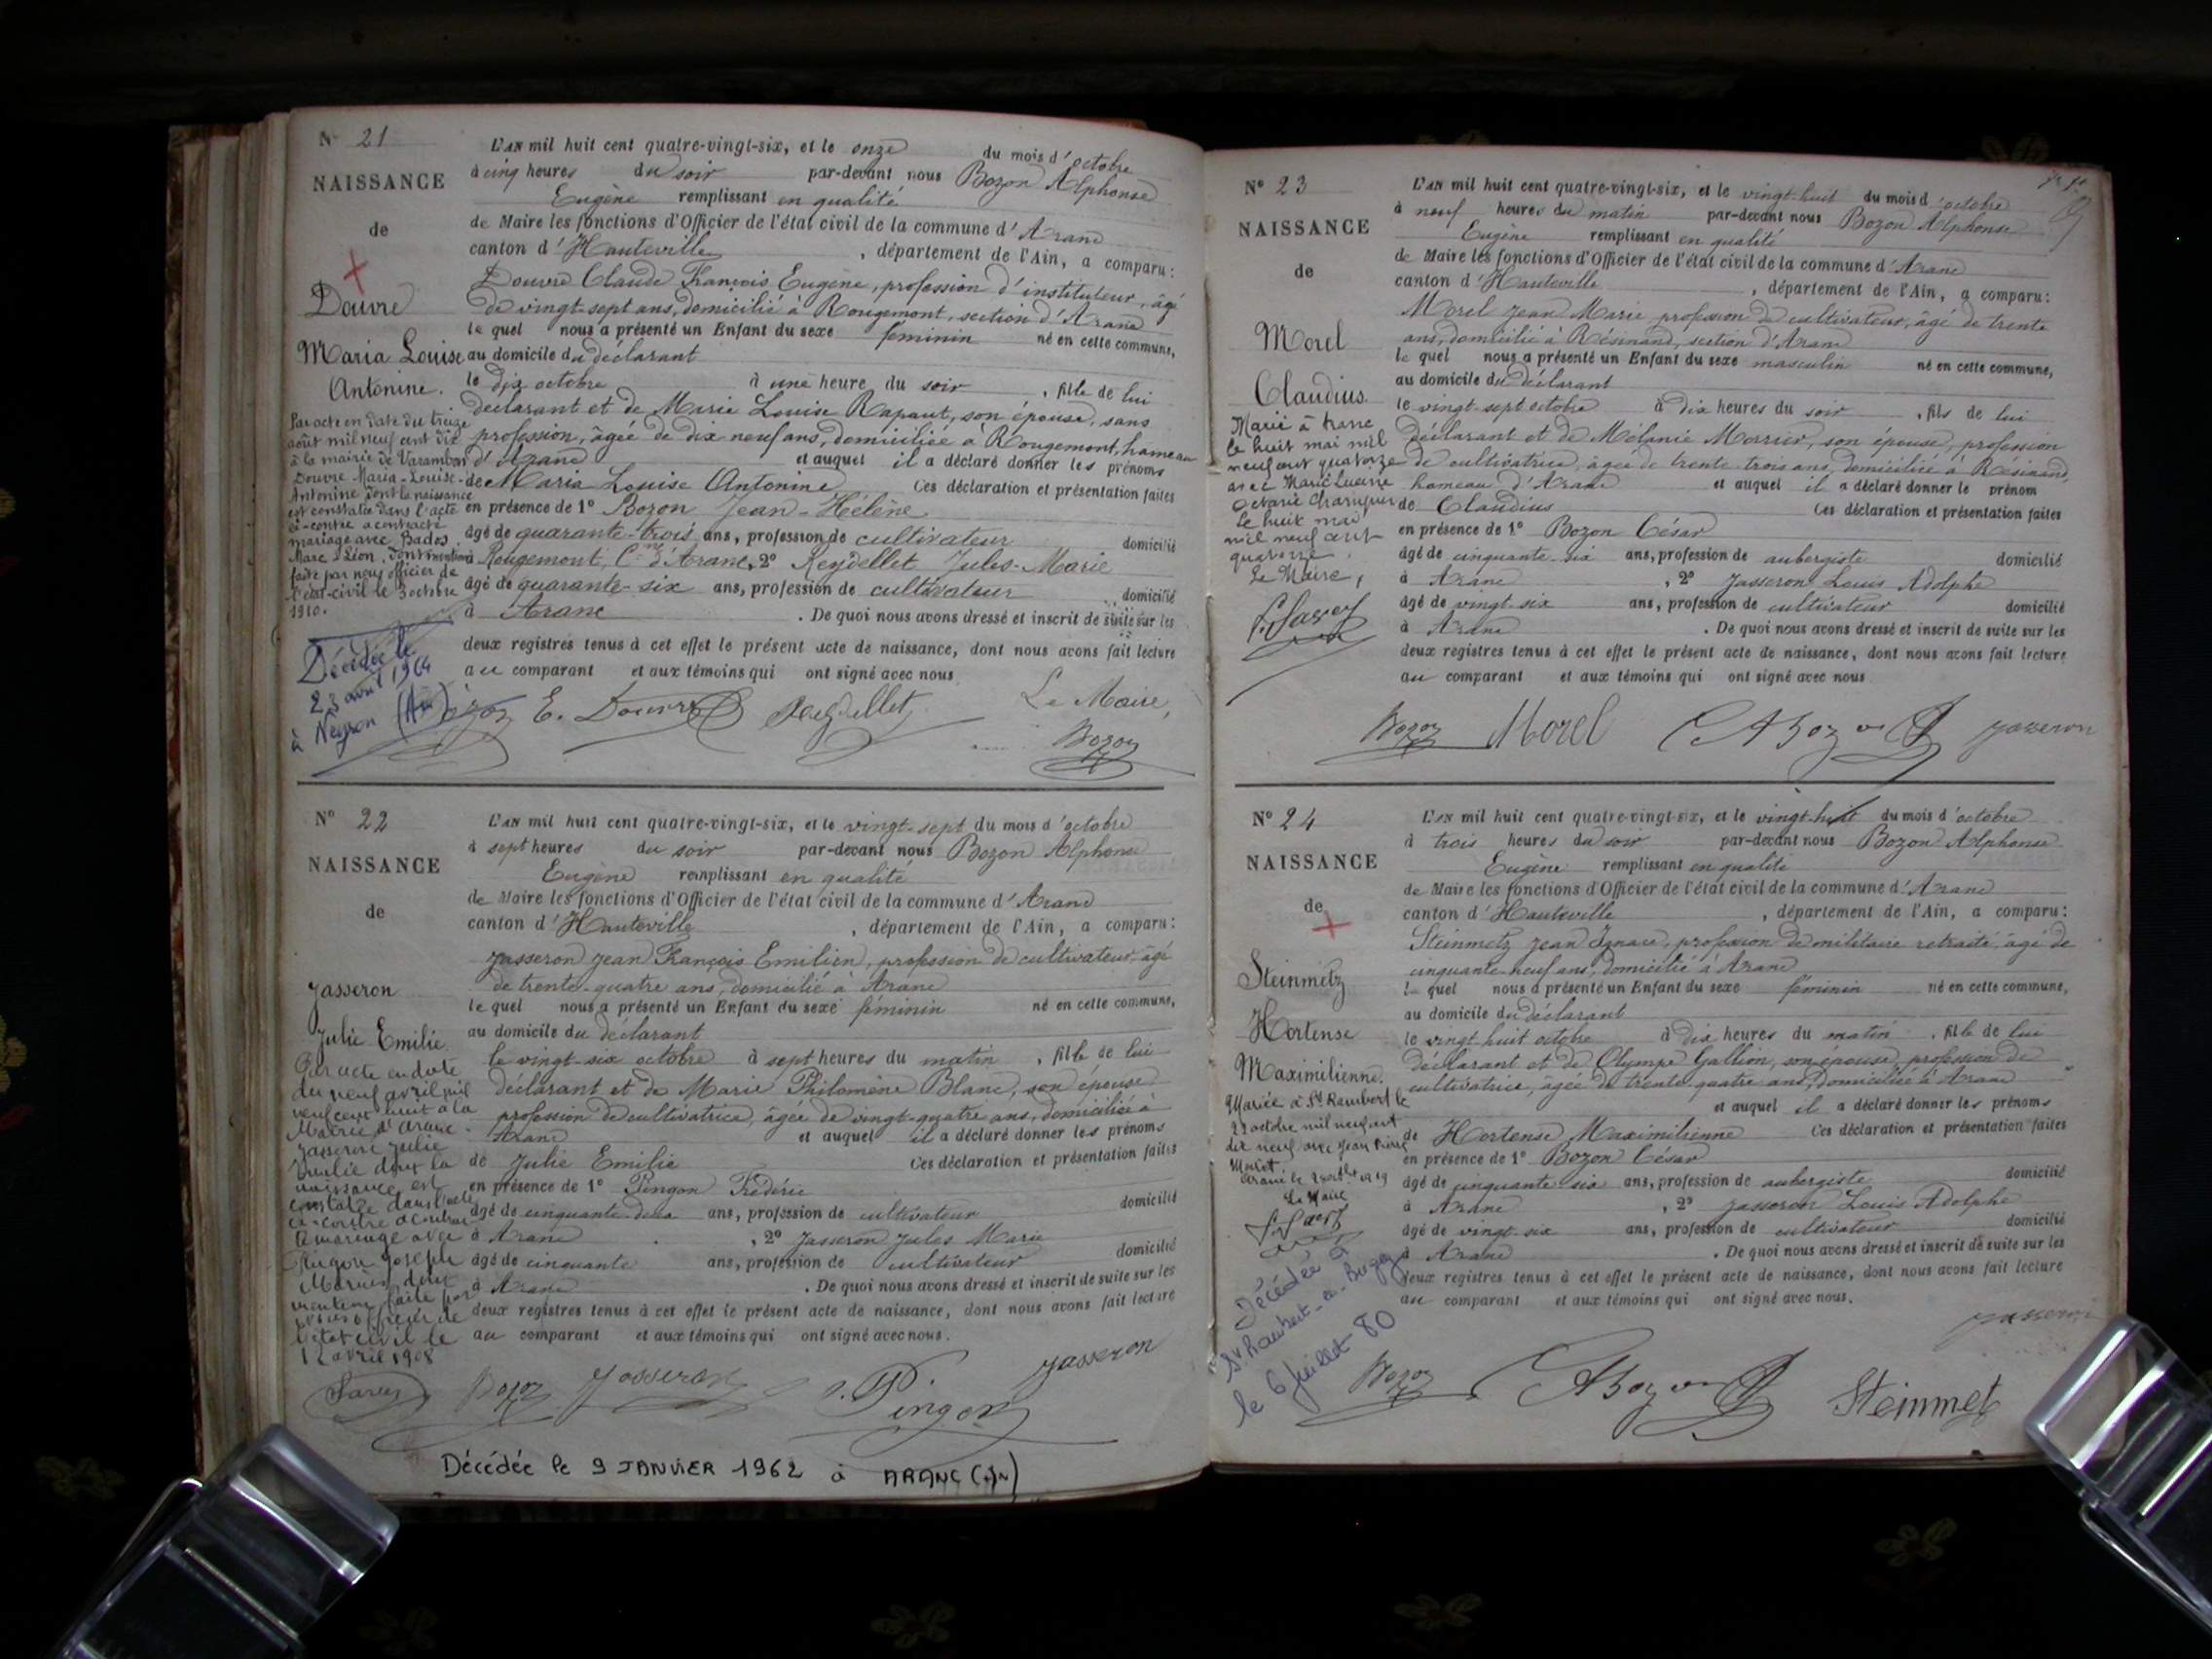 N° 21
NAISSANCE
de
Douvre
Maria Louise
Antonine.
Par acte en date du treize
août mil neuf cent dix
à la mairie de Varambon
Douvre Maria-Louise-
Antonine dont la naissance
est constatée dans l'acte
ci-contre a contracté
mariage avec Bados
Marc Léon, dont mention
faite par nous officier de
l'état-civil le 3 octobre
1910.
Décédée le
23 avril 1964
à Neyron (Ain)
L'AN mil huit cent quatre-vingt-six, et le onze du mois d'octobre
à cinq heures du soir par-devant nous Bozon Alphonse
Eugène remplissant en qualité
de Maire les fonctions d'Officier de l'état civil de la commune d'Aranc
canton d'Hauteville, département de l'Ain, a comparu:
Douvre Claude François Eugène, profession d'instituteur, âgé
de vingt-sept ans, domicilié à Rougemont, section d'Aranc
lequel nous a présenté un Enfant du sexe féminin né en cette commune,
au domicile du déclarant
le dix octobre à une heure du soir, fille de lui
déclarant et de Marie Louise Rapaut, son épouse, sans
profession, âgée de dix neuf ans, domiciliée à Rougemont, hameau
d'Aranc et auquel il a déclaré donner les prénoms
de Maria Louise Antonine Ces déclaration et présentation faites
en présence de 1° Bozon Jean-Hélène
âgé de quarante-trois ans, profession de cultivateur domicilié
à Rougemont, Cne d'Aranc, 2° Reydellet Jules-Marie
âgé de quarante-six ans, profession de cultivateur domicilié
à Aranc. De quoi nous avons dressé et inscrit de suite sur les
deux registres tenus à cet effet le présent acte de naissance, dont nous avons fait lecture
au comparant et aux témoins qui ont signé avec nous
Le Maire,
Bozon E. Douvre Reydellet
Bozon
N° 22
NAISSANCE
de
Jasseron
Julie Emilie.
Par acte en date
du neuf avril mil
neuf cent huit à la
Mairie d'Aranc
Jasseron Julie
Emilie dont la
naissance est
constatée dans l'acte
ci-contre a contracté
mariage avec
Pingon Joseph
Marius, dont
mention faite par
nous officier de
l'état civil le
12 avril 1908
Savey
L'AN mil huit cent quatre-vingt-six, et le vingt-sept du mois d'octobre
à sept heures du soir par-devant nous Bozon Alphonse
Eugène remplissant en qualité
de Maire les fonctions d'Officier de l'état civil de la commune d'Aranc
canton d'Hauteville, département de l'Ain, a comparu:
Jasseron Jean François Emilien, profession de cultivateur, âgé
de trente-quatre ans, domicilié à Aranc
lequel nous a présenté un Enfant du sexe féminin né en cette commune,
au domicile du déclarant
le vingt-six octobre à sept heures du matin, fille de lui
déclarant et de Marie Philomène Blanc, son épouse
profession de cultivatrice, âgée de vingt-quatre ans, domiciliée à
Aranc et auquel il a déclaré donner les prénoms
de Julie Emilie Ces déclaration et présentation faites
en présence de 1° Pingon Frédéric
âgé de cinquante-deux ans, profession de cultivateur domicilié
à Aranc, 2° Jasseron Jules Marie
âgé de cinquante ans, profession de cultivateur domicilié
à Aranc. De quoi nous avons dressé et inscrit de suite sur les
deux registres tenus à cet effet le présent acte de naissance, dont nous avons fait lecture
au comparant et aux témoins qui ont signé avec nous.
Bozon Jasseron Pingon Jasseron
Décédée le 9 JANVIER 1962 à ARANC (AIN)
N° 23
NAISSANCE
de
Morel
Claudius.
Marié à Aranc
le huit mai mil
neuf cent quatorze
avec Marie Lucie
Octavie
le huit mai
mil neuf cent
quatorze.
Le Maire,
L'AN mil huit cent quatre-vingt-six, et le vingt-huit du mois d'octobre
à neuf heures du matin par-devant nous Bozon Alphonse
Eugène remplissant en qualité
de Maire les fonctions d'Officier de l'état civil de la commune d'Aranc
canton d'Hauteville, département de l'Ain, a comparu:
Morel Jean Marie profession de cultivateur, âgé de trente
ans, domicilié à Résinand, section d'Aranc
lequel nous a présenté un Enfant du sexe masculin né en cette commune,
au domicile du déclarant
le vingt-sept octobre à dix heures du soir, fils de lui
déclarant et de Mélanie Morrier, son épouse, profession
de cultivatrice, âgée de trente-trois ans, domiciliée à Résinand,
hameau d'Aranc et auquel il a déclaré donner le prénom
de Claudius Ces déclaration et présentation faites
en présence de 1° Bozon César
âgé de cinquante-six ans, profession de aubergiste domicilié
à Aranc, 2° Jasseron Louis Adolphe
âgé de vingt-six ans, profession de cultivateur domicilié
à Aranc. De quoi nous avons dressé et inscrit de suite sur les
deux registres tenus à cet effet le présent acte de naissance, dont nous avons fait lecture
au comparant et aux témoins qui ont signé avec nous
Bozon Morel C A Bozon Jasseron
N° 24
NAISSANCE
de
Steinmetz
Hortense
Maximilienne.
Mariée à St Rambert le
octobre mil neuf cent
dix neuf avec Jean Pierre
Aranc le 1919
Le Maire
Décédée à
St Rambert-en-Bugey
le 6 juillet 80
L'AN mil huit cent quatre-vingt-six, et le vingt-huit du mois d'octobre
à trois heures du soir par-devant nous Bozon Alphonse
Eugène remplissant en qualité
de Maire les fonctions d'Officier de l'état civil de la commune d'Aranc
canton d'Hauteville, département de l'Ain, a comparu:
Steinmetz Jean Ignace, profession de militaire retraité, âgé de
cinquante-neuf ans, domicilié à Aranc
lequel nous a présenté un Enfant du sexe féminin né en cette commune,
au domicile du déclarant
le vingt huit octobre à dix heures du matin, fille de lui
déclarant et de Olympe Gallion, son épouse, profession de
cultivatrice, âgée de trente-quatre ans, domiciliée à Aranc
et auquel il a déclaré donner les prénoms
de Hortense Maximilienne Ces déclaration et présentation faites
en présence de 1° Bozon César
âgé de cinquante-six ans, profession de aubergiste domicilié
à Aranc, 2° Jasseron Louis Adolphe
âgé de vingt-six ans, profession de cultivateur domicilié
à Aranc. De quoi nous avons dressé et inscrit de suite sur les
deux registres tenus à cet effet le présent acte de naissance, dont nous avons fait lecture
au comparant et aux témoins qui ont signé avec nous.
Jasseron
Bozon C A Bozon Steinmetz